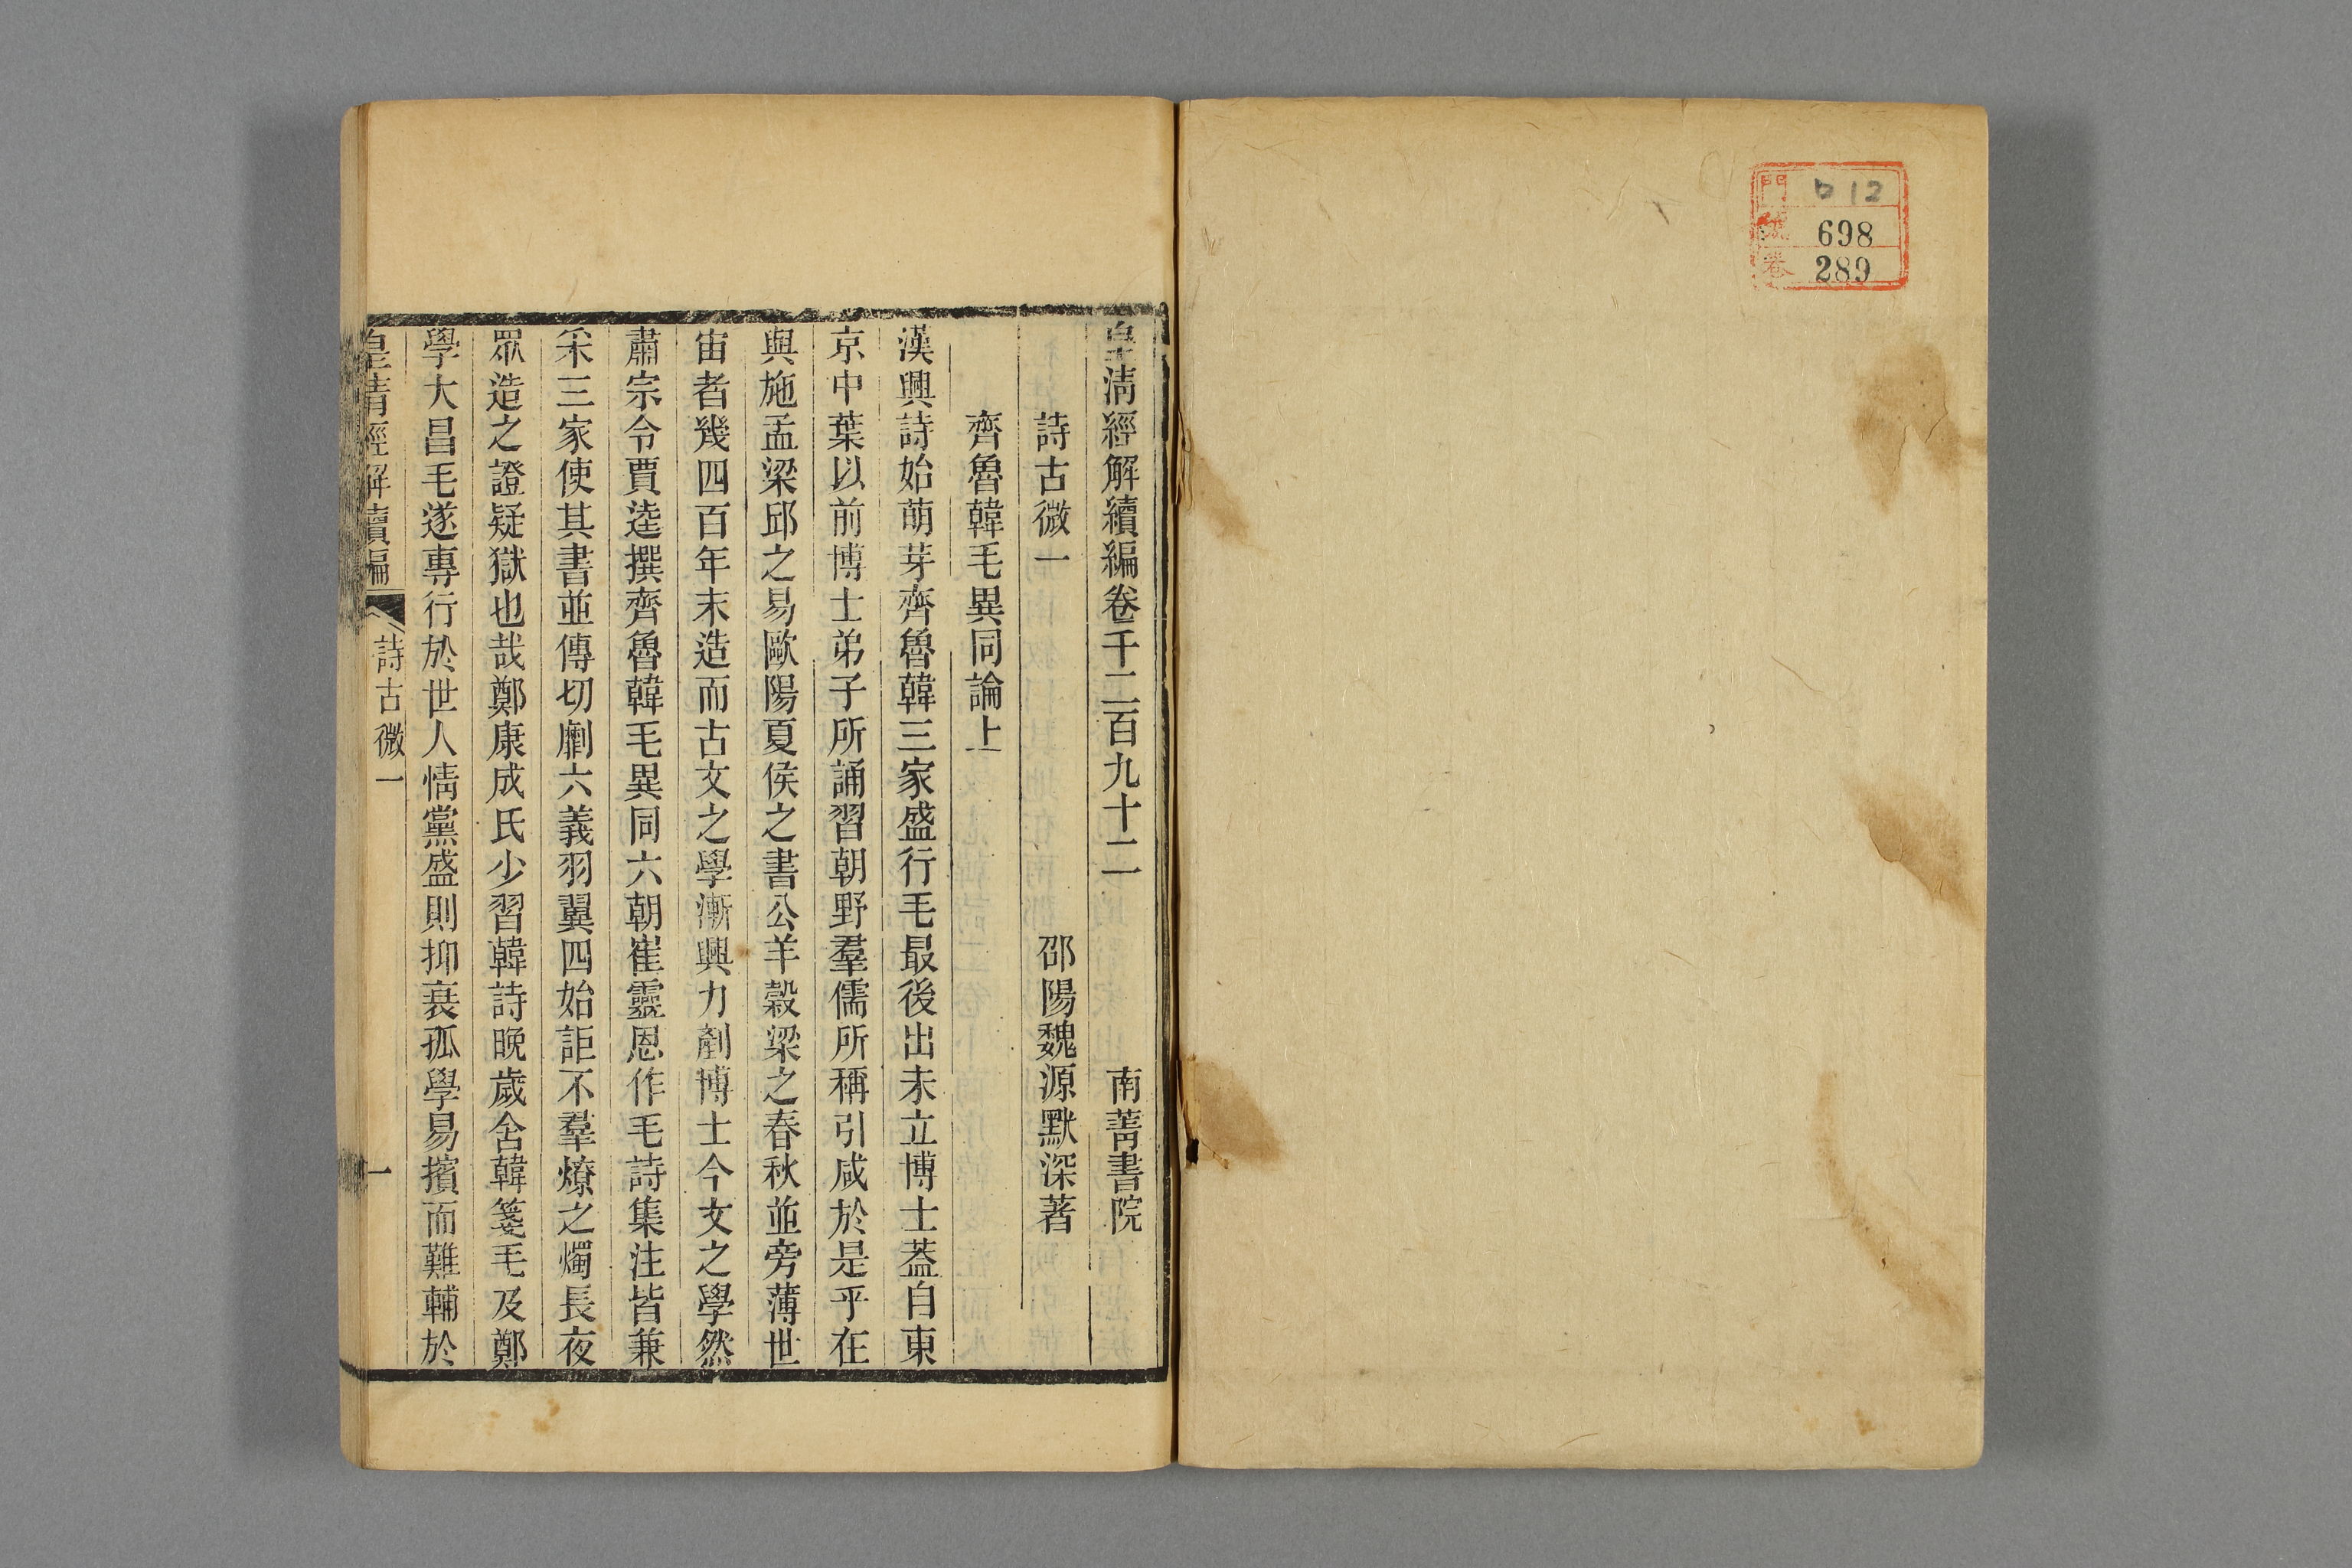 門 ロ12
號 698
卷 289
皇淸經解續編卷千二百九十二 南菁書院
詩古微一 邵陽魏源默深著
齊魯韓毛異同論上
漢興詩始萌芽齊魯韓三家盛行毛最後出未立博士蓋自東
京中葉以前博士弟子所誦習朝野羣儒所稱引咸於是乎在
與施孟梁邱之易歐陽夏侯之書公羊穀梁之春秋並旁薄世
宙者幾四百年末造而古文之學漸興力剷博士今文之學然
肅宗令賈逵撰齊魯韓毛異同六朝崔靈恩作毛詩集注皆兼
采三家使其書並傳切劘六義羽翼四始詎不羣燎之燭長夜
眾造之證疑獄也哉鄭康成氏少習韓詩晚歲舍韓箋毛及鄭
學大昌毛遂專行於世人情黨盛則抑衰孤學易擯而難輔於
皇淸經解續編 詩古微一 一